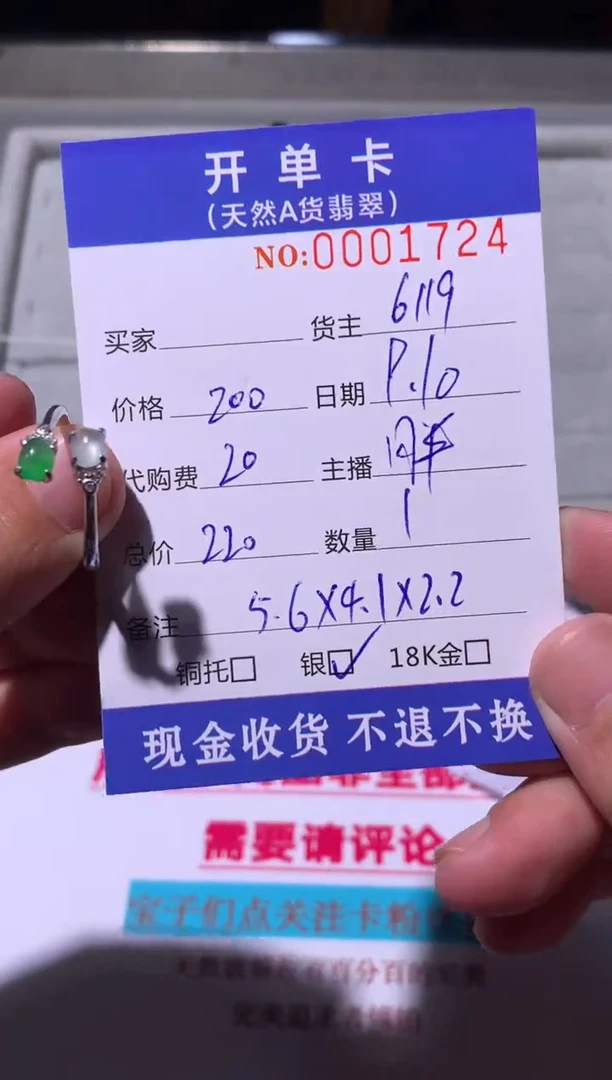 开单卡
(天然A货翡翠)
NO:0001724
买家 货主 6119
价格 200 日期 9.10
代购费 20 主播
总价 220 数量 1
备注 5.6X4.1X2.2
铜托□ 银☑ 18K金□
现金收货 不退不换
需要请评论
宝子们点关注卡粉